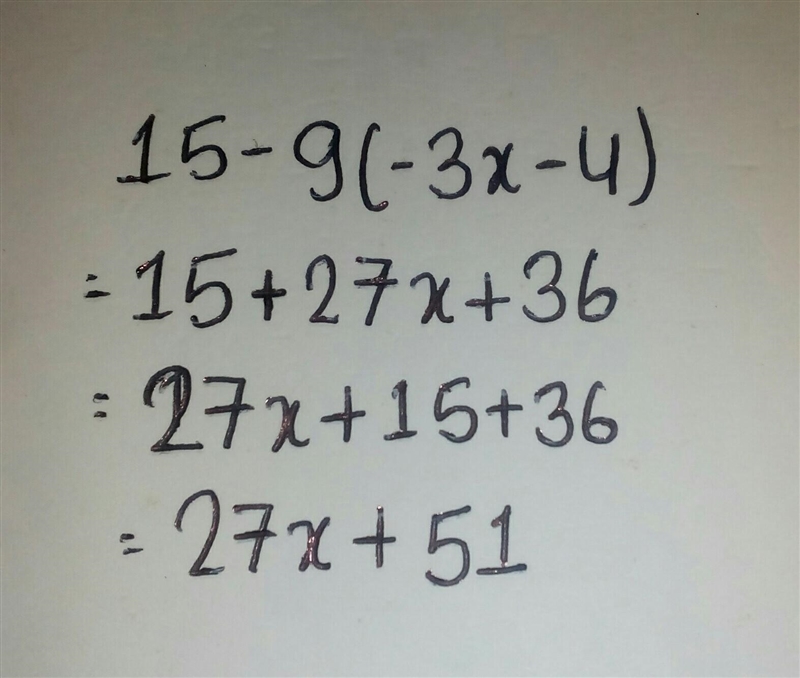 15-9(-3x-4)
=15+27x+36
=27x+15+36
=27x+51